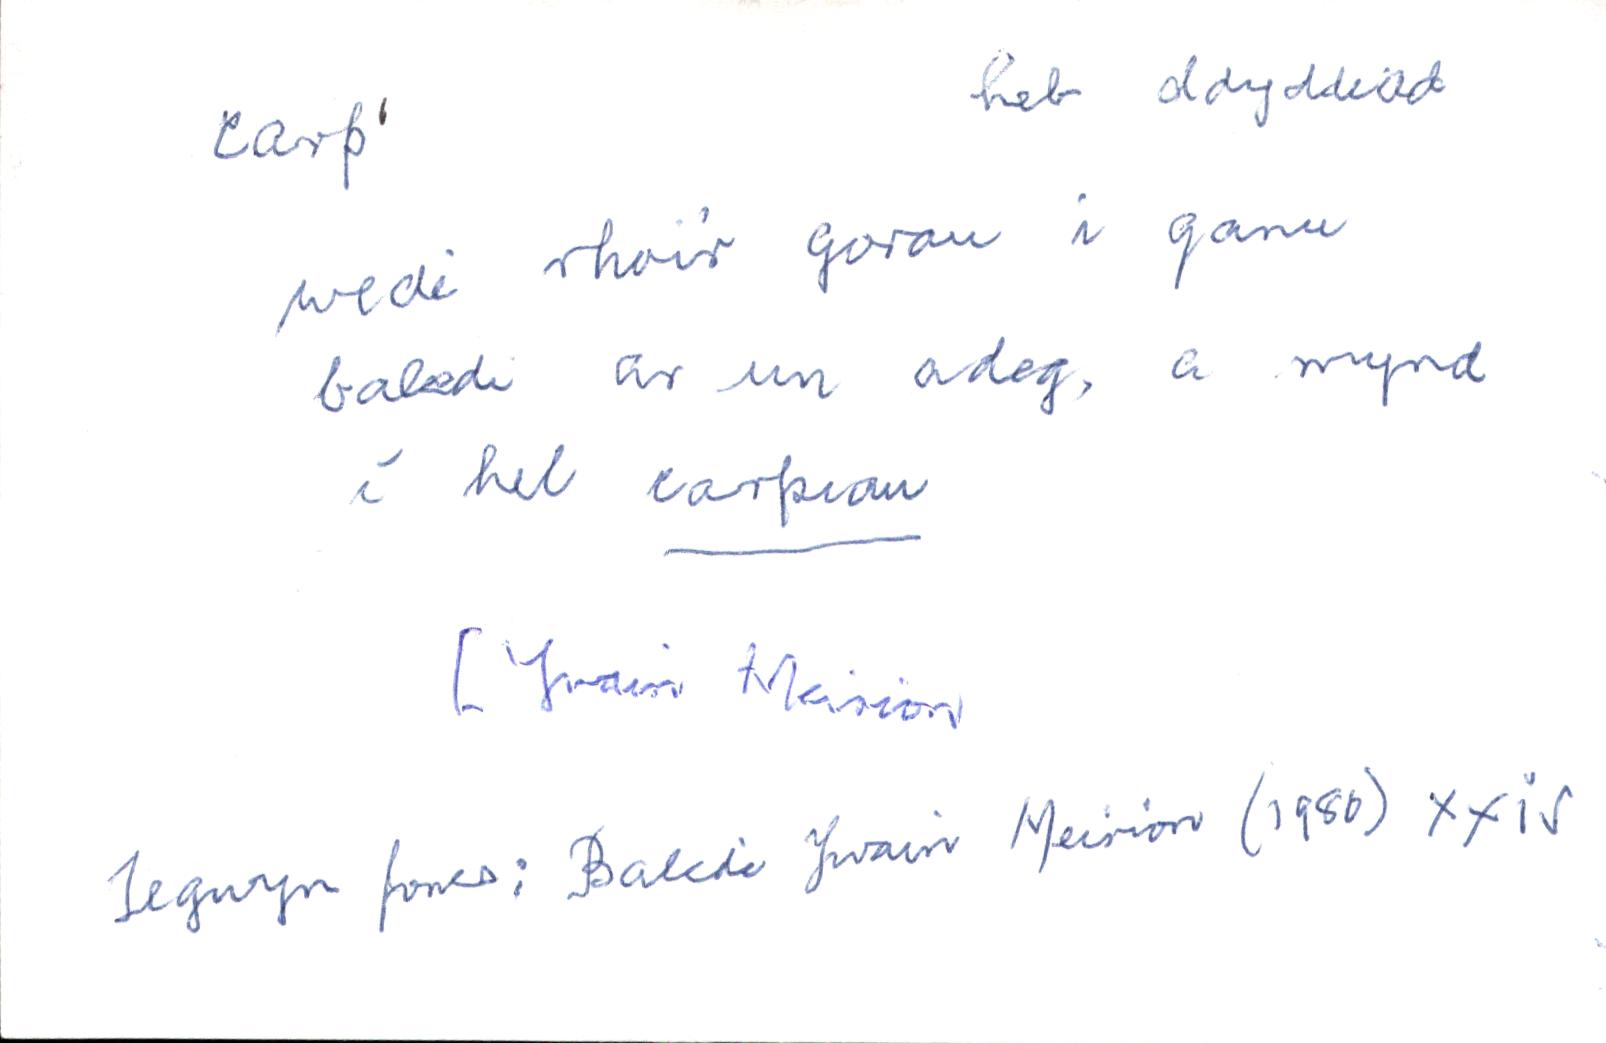 heb ddyddiad
carp¹
wedi rhoi'r gorau i ganu
baledi ar un adeg, a mynd
i hel carpiau
[Ywain Meirion
Tegwyn Jones: Baledi Ywain Meirion (1980) xxiv